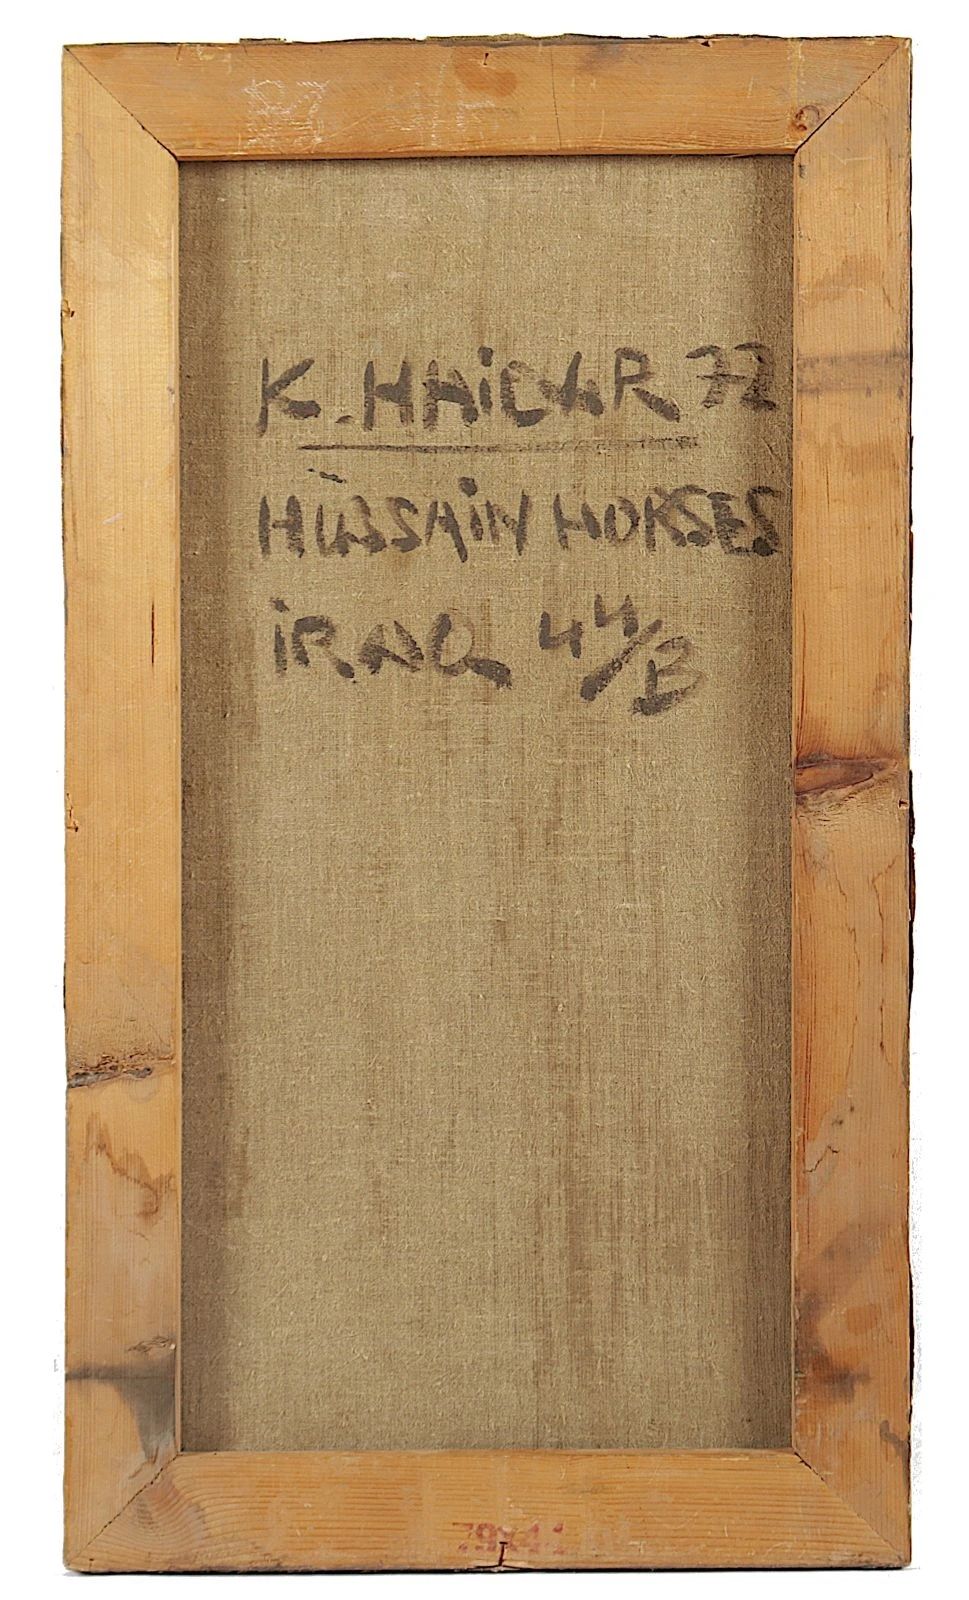 K. HAIDAR 72
HUSSAIN HORSES
IRAQ 44/B